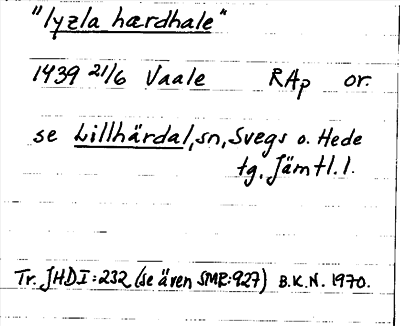 "lyzla hærdhale"
1439 21/6 Vaale RAp or.
se Lillhärdal, sn, Svegs o. Hede
tg, Jämtl. l.
Tr. JHD I: 232 (se även SMR: 927) B.K.N. 1970.